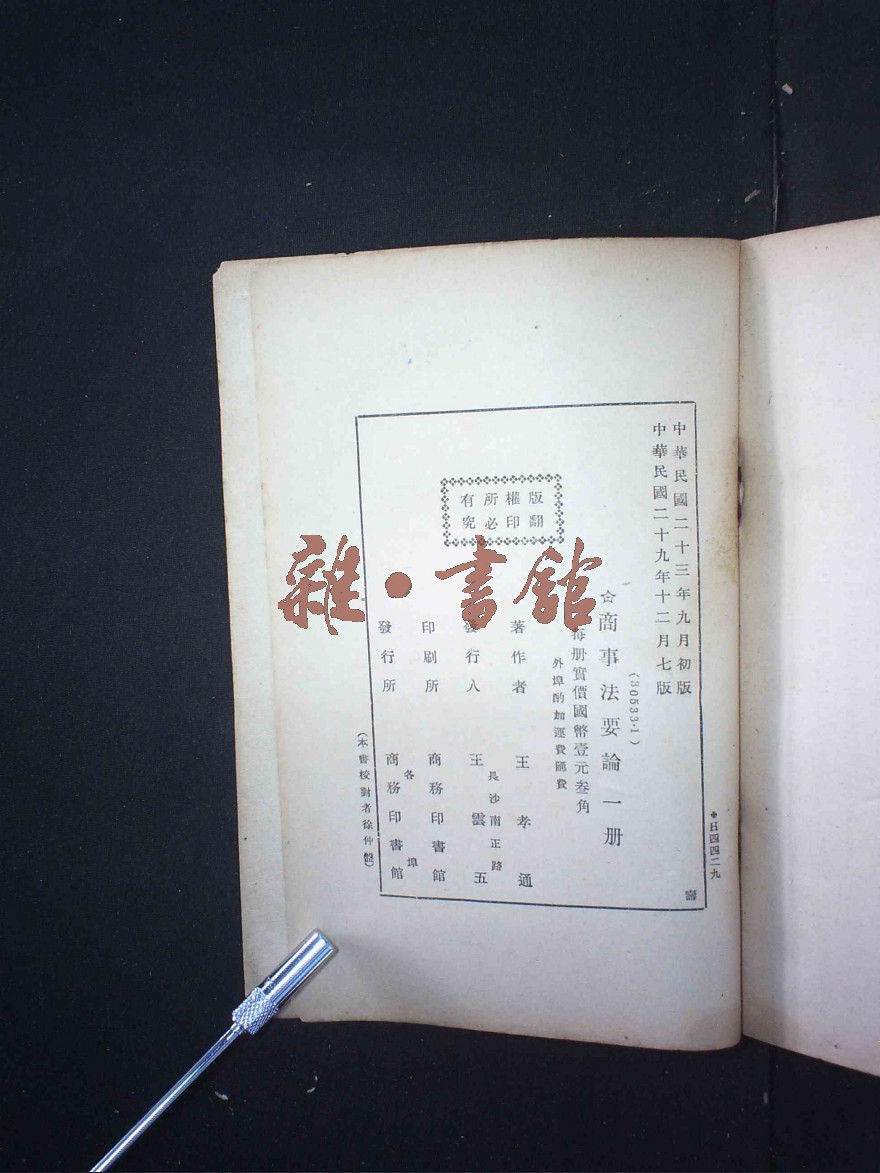 中華民國二十三年九月初版
中華民國二十九年十二月七版
(30533·1)
☆商事法要論一册
每册實價國幣壹元叁角
外埠酌加運費匯費
著作者 王孝通
長沙南正路
發行人 王雲五
印刷所 商務印書館
各埠
發行所 商務印書館
版權所有
翻印必究
(本書校對者徐仲盤)
H四四二九
雜·書館